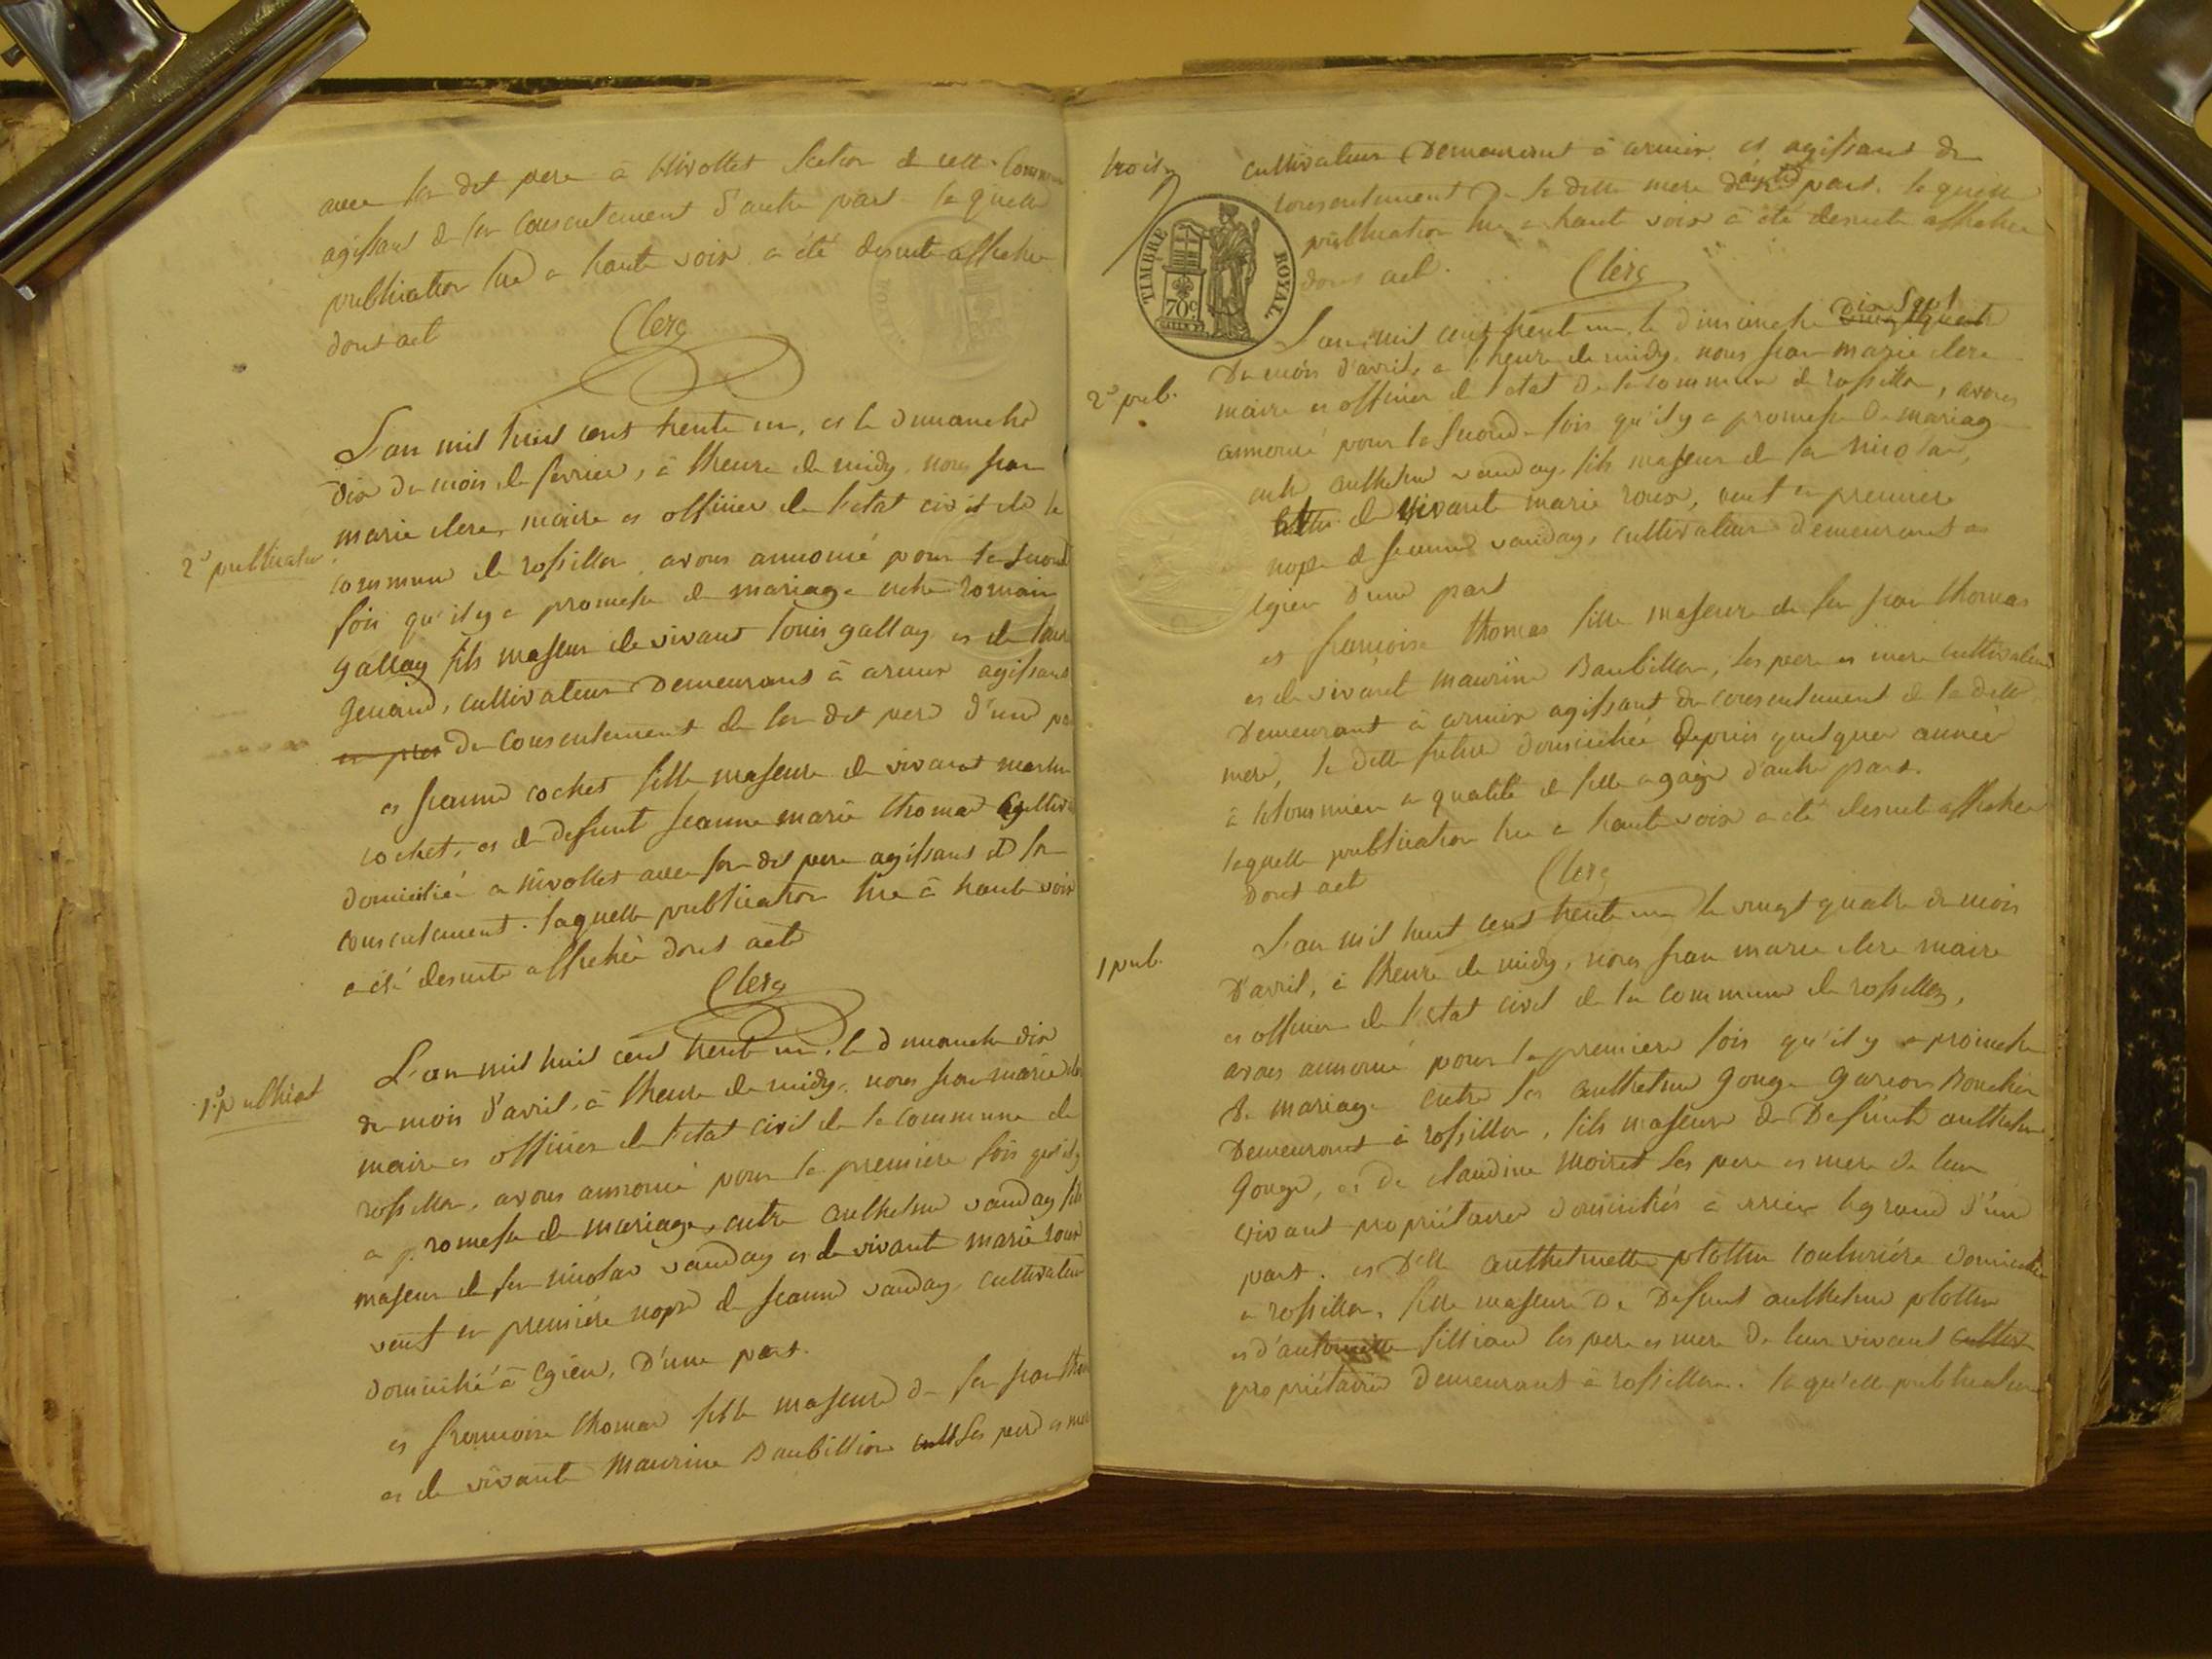 avec son dit pere à Nivollet section de cette Commune
agissant de son consentement d'autre part. laquelle
publication lue a haute voix a été desuite affichée
dont acte
Clerc
L'an mil huit cent trente un, et le dimanche
dix du mois de fevrier, à lheure de midy, nous jean
marie clerc, maire et officier de l'etat civil de la
2e publication
commune de rossillon, avons annoncé pour la second
fois qu'il y a promesse de mariage entre romain
gallay fils majeur de vivant louis gallay et de
genand, cultivateur demeurant à armix agissant
du consentement de son dit pere d'une pa
et jeanne cochet fille majeure de vivant martin
cochet, et de defunt jeanne marie thomas
domiciliée a nivollet avec son dit pere agissant de son
consentement. laquelle publication lue à haute voix
a été desuite affichée dont acte
Clerc
L'an mil huit cent trente un, le dimanche dix
du mois d'avril, à lheure de midy, nous jean marie clerc
1e publicat
maire et officier de l'etat civil de la commune de
rossillon, avons annoncé pour la premiere fois qu'il y
a promesse de mariage, entre anthelme vanday fils
majeur de feu nicolas vanday et de vivante marie roux
veuf en premiére nopse de jeanne vanday cultivateur
domicilié à Egieu, d'une part.
et francoise thomas fille majeure de feu jean thom
et de vivante maurine Baubillion ses pere et mere
trois
cultivateur demeurant à armix et agissant du
consentement de la dite mere d'autre part. laquelle
publication lue a haute voix a été desuite affichée
dont act.
Clerc
TIMBRE ROYAL.
70c
L'an mil cent trente un, le dimanche dix sept
du mois d'avril, a l'heure de midy, nous jean marie clerc
2e pub.
maire et officier de l'etat de la commune de rossillon, avons
annoncé pour la seconde fois qu'il y a promesse de mariage
entre anthelme vanday fils majeur de feu nicolas,
et de vivante marie roux, veuf en premiere
nopse de jeanne vanday, cultivateur demeurant a
Egieu d'une part
et francoise thomas fille majeure de feu jean thomas
et de vivante maurine Baubillon, ses pere et mere cultivateur
demeurant à armix agissant du consentement de la ditte
mere, la ditte future domiciliée depuis quelques année
à en qualité de fille a gage d'autre part.
laquelle publication lue a haute voix a été desuite affichée
dont act
Clerc
L'an mil huit cent trente un le vingt quatre du mois
1 pub.
d'avril, à lheure de midy, nous jean marie clerc maire
et officier de l'etat civil de la commune de rossillon,
avons annoncé pour la premiere fois qu'il y a promesse
de mariage entre les anthelme gouge garcon Boucher
demeurant à rossillon, fils majeur de defunt anthelme
gouge, et de claudine moiret ses pere et mere de leur
vivant propriétaires domiciliés à virieu legrand d'une
part. et Delle anthelmette plottin couturiére domiciliée
a rossillon, fille majeure de defunt anthelme plottin
et d' filliand ses pere et mere de leur vivant
propriétaires demeurant à rossillon. laqu'elle publication